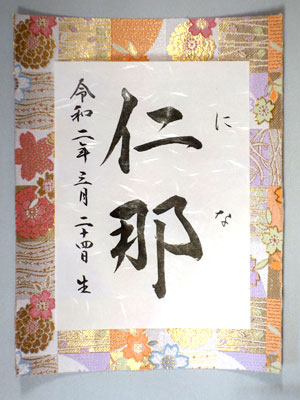 にな
仁那
令和二年三月二十四日生